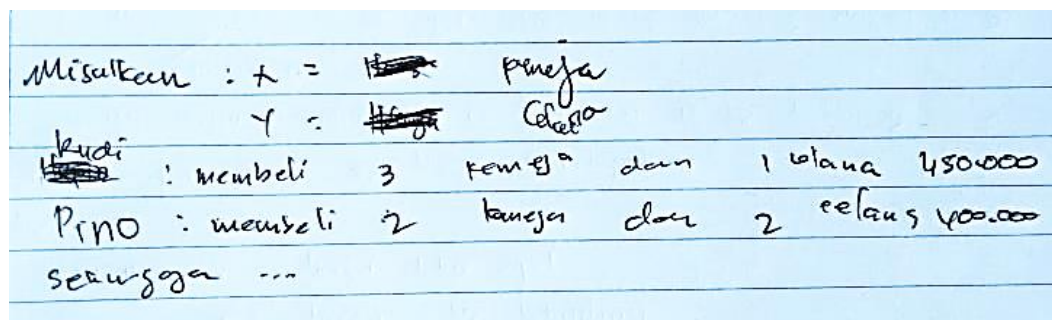 Misalkan : x = kemeja
Y = Celana
Rudi : membeli 3 kemeja dan 1 celana 450.000
Pino : membeli 2 kemeja dan 2 celana 400.000
sehingga ...